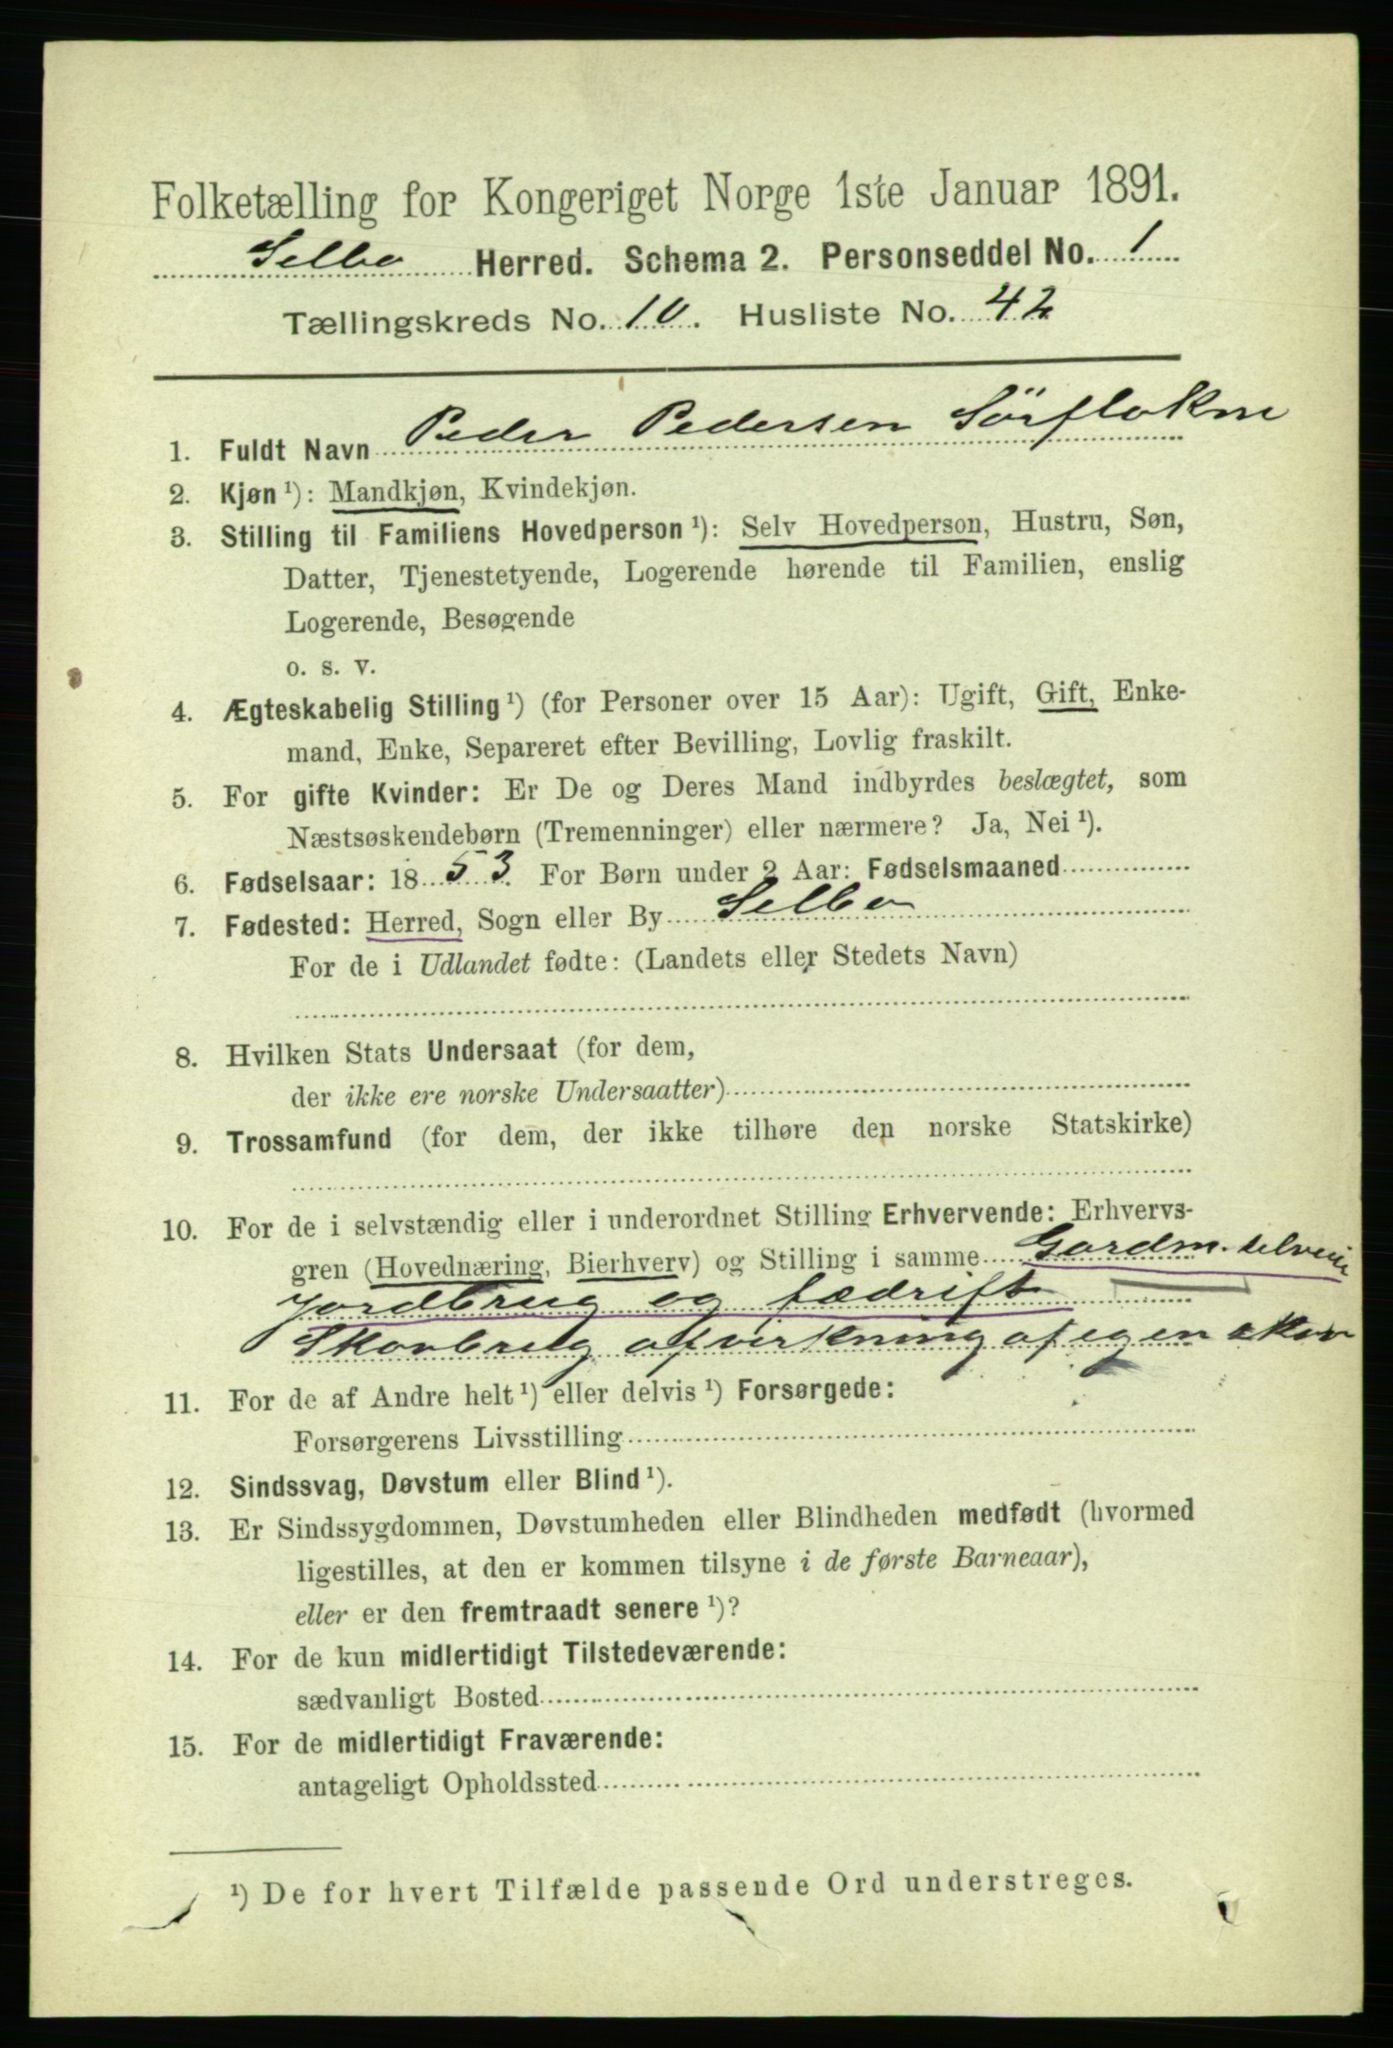 Folketælling for Kongeriget Norge 1ste Januar 1891.
Selbo Herred. Schema 2. Personseddel No. 1
Tællingskreds No. 10. Husliste No. 42
1. Fuldt Navn Peder Pedersen Sörflakne
2. Kjøn ¹): Mandkjøn, Kvindekjøn.
3. Stilling til Familiens Hovedperson ¹): Selv Hovedperson, Hustru, Søn,
Datter, Tjenestetyende, Logerende hørende til Familien, enslig
Logerende, Besøgende
o. s. v.
4. Ægteskabelig Stilling ¹) (for Personer over 15 Aar): Ugift, Gift, Enke-
mand, Enke, Separeret efter Bevilling, Lovlig fraskilt.
5. For gifte Kvinder: Er De og Deres Mand indbyrdes beslægtet, som
Næstsøskendebørn (Tremenninger) eller nærmere? Ja, Nei ¹).
6. Fødselsaar: 1853. For Børn under 2 Aar: Fødselsmaaned
7. Fødested: Herred, Sogn eller By Selbo
For de i Udlandet fødte: (Landets eller Stedets Navn)
8. Hvilken Stats Undersaat (for dem,
der ikke ere norske Undersaatter)
9. Trossamfund (for dem, der ikke tilhøre den norske Statskirke)
10. For de i selvstændig eller i underordnet Stilling Erhvervende: Erhvervs-
gren (Hovednæring, Bierhverv) og Stilling i samme Gardm. selveie
Jordbrug og fædrift
Skovbrug afvirkning af egen skov
11. For de af Andre helt ¹) eller delvis ¹) Forsørgede:
Forsørgerens Livsstilling
12. Sindssvag, Døvstum eller Blind ¹).
13. Er Sindssygdommen, Døvstumheden eller Blindheden medfødt (hvormed
ligestilles, at den er kommen tilsyne i de første Barneaar),
eller er den fremtraadt senere ¹)?
14. For de kun midlertidigt Tilstedeværende:
sædvanligt Bosted
15. For de midlertidigt Fraværende:
antageligt Opholdssted
¹) De for hvert Tilfælde passende Ord understreges.